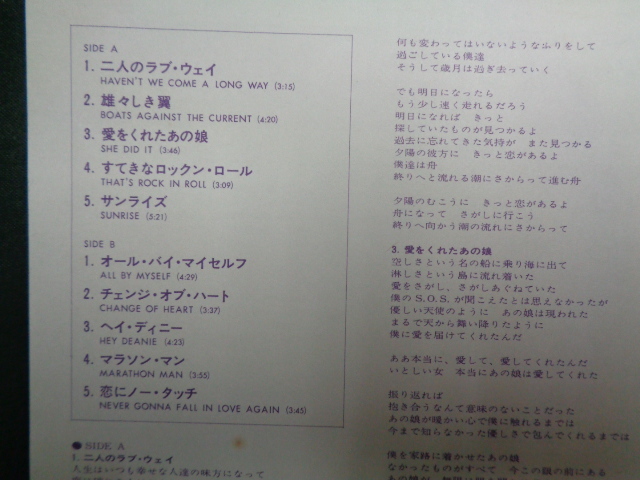 SIDE A
1. 二人のラブ・ウェイ
HAVEN'T WE COME A LONG WAY (3:15)
2. 雄々しき翼
BOATS AGAINST THE CURRENT (4:20)
3. 愛をくれたあの娘
SHE DID IT (3:46)
4. すてきなロックン・ロール
THAT'S ROCK IN ROLL (3:09)
5. サンライズ
SUNRISE (5:21)
SIDE B
1. オール・バイ・マイセルフ
ALL BY MYSELF (4:29)
2. チェンジ・オブ・ハート
CHANGE OF HEART (3:37)
3. ヘイ・ディニー
HEY DEANIE (4:23)
4. マラソン・マン
MARATHON MAN (3:55)
5. 恋にノー・タッチ
NEVER GONNA FALL IN LOVE AGAIN (3:45)
●SIDE A
1. 二人のラブ・ウェイ
人生はいつも幸せな人達の味方になって
何も変わってはいないようなふりをして
過ごしている僕達
そうして歳月は過ぎ去っていく
でも明日になったら
もう少し速く走れるだろう
明日になれば きっと
探していたものが見つかるよ
過去に忘れてきた気持が また見つかる
夕陽の彼方に きっと恋があるよ
僕達は舟
終りへと流れる潮にさからって進む舟
夕陽のむこうに きっと恋があるよ
舟になって さがしに行こう
終りへ向かう潮の流れにさからって
3. 愛をくれたあの娘
空しさという名の船に乗り海に出て
淋しさという島に流れ着いた
愛をさがし、さがしあぐねていた
僕のS.O.S.が聞こえたとは思えなかったが
優しい天使のように あの娘は現われた
まるで天から舞い降りたように
僕に愛を届けてくれたんだ
ああ本当に、愛して、愛してくれたんだ
いとしい女 本当にあの娘は愛してくれた
振り返れば
抱き合うなんて意味のないことだった
あの娘が暖かい心で僕に触れるまでは
今まで知らなかった優しさで包んでくれるまでは
僕を家路に着かせたあの娘
なかったものがすべて 今この娘の前にある